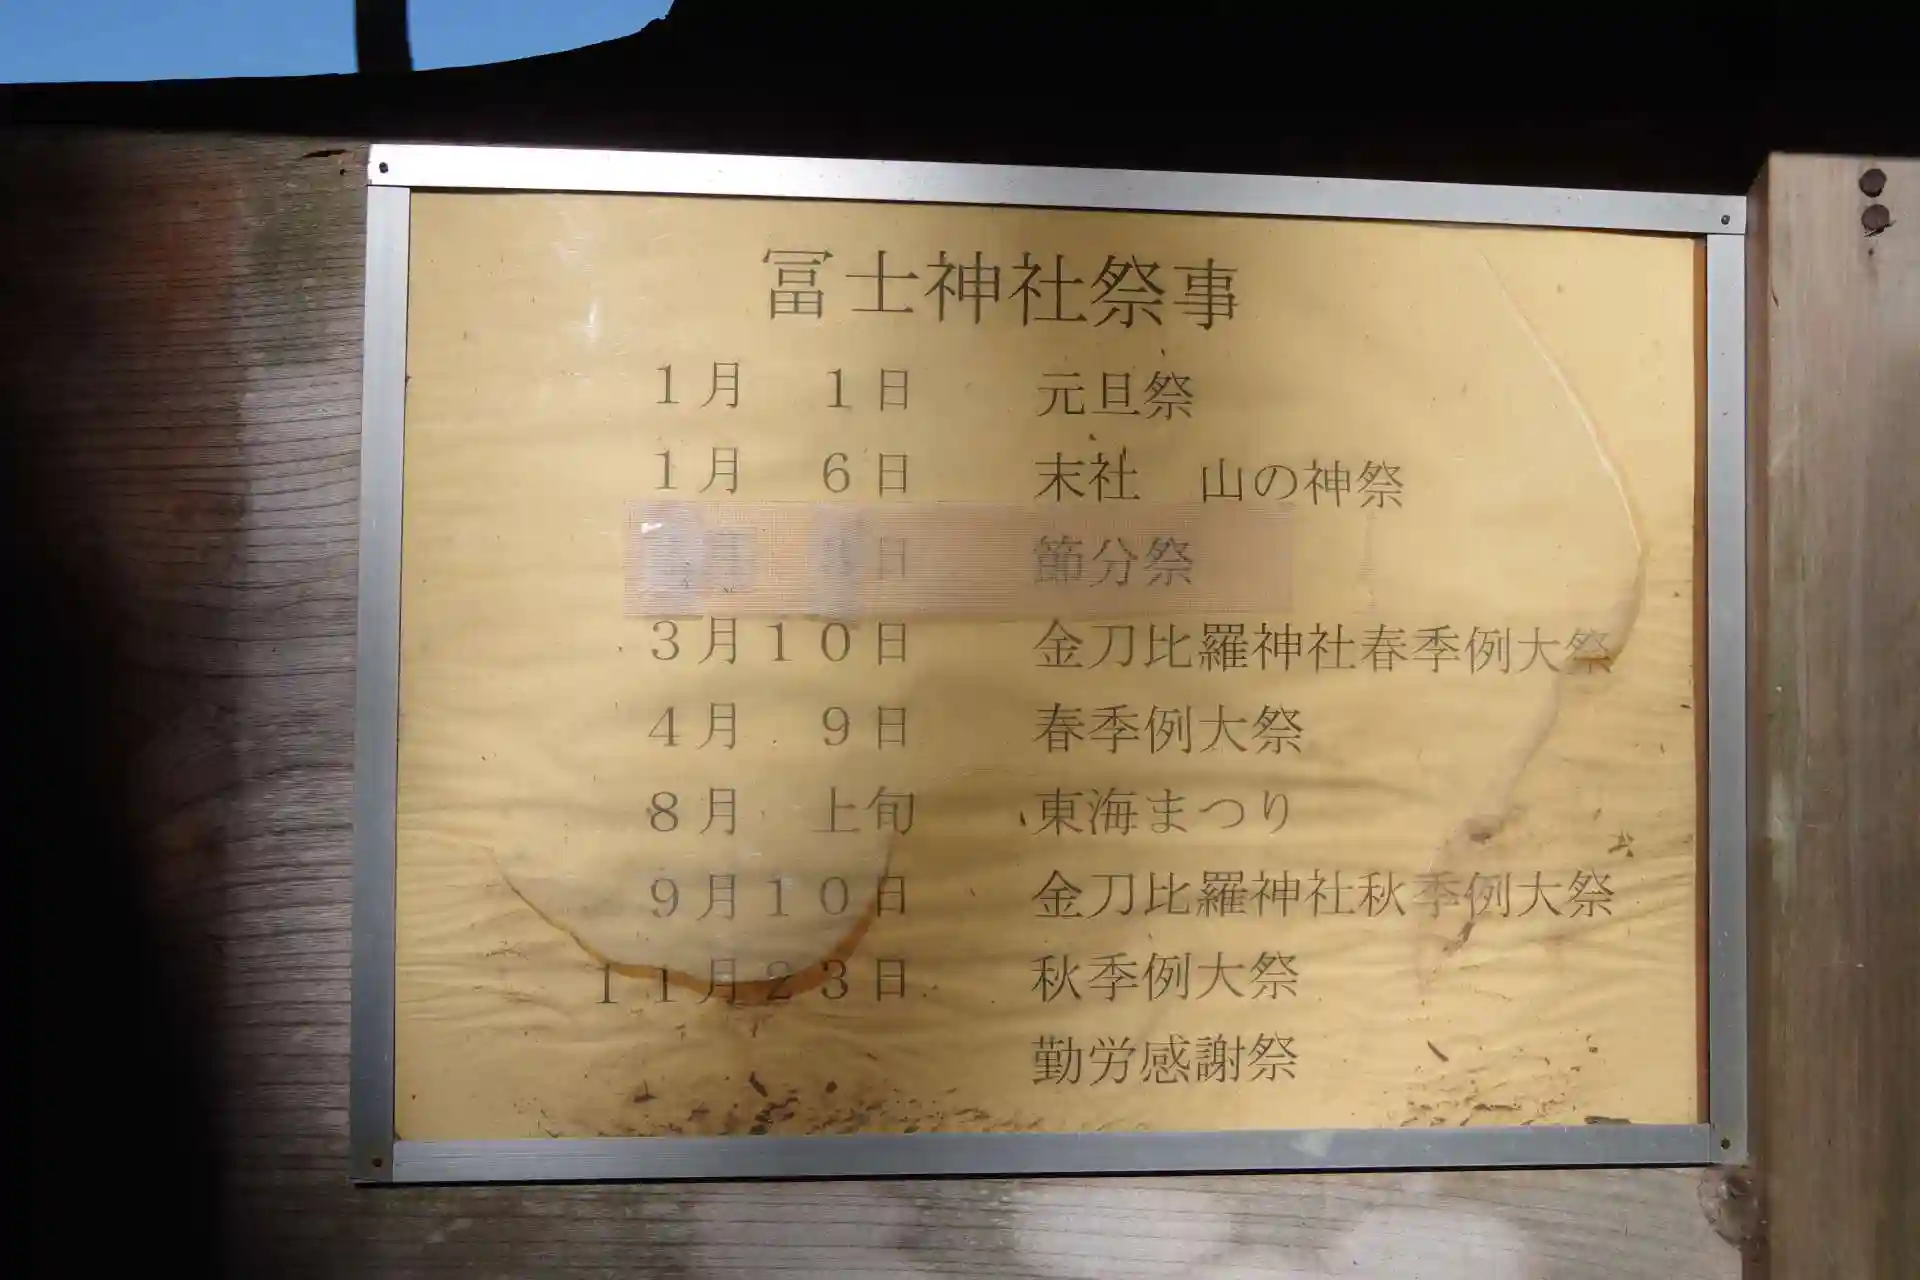 冨士神社祭事
1月　1日　元旦祭
1月　6日　末社　山の神祭
月　日　節分祭
3月10日　金刀比羅神社春季例大祭
4月　9日　春季例大祭
8月　上旬　東海まつり
9月10日　金刀比羅神社秋季例大祭
11月23日　秋季例大祭
勤労感謝祭